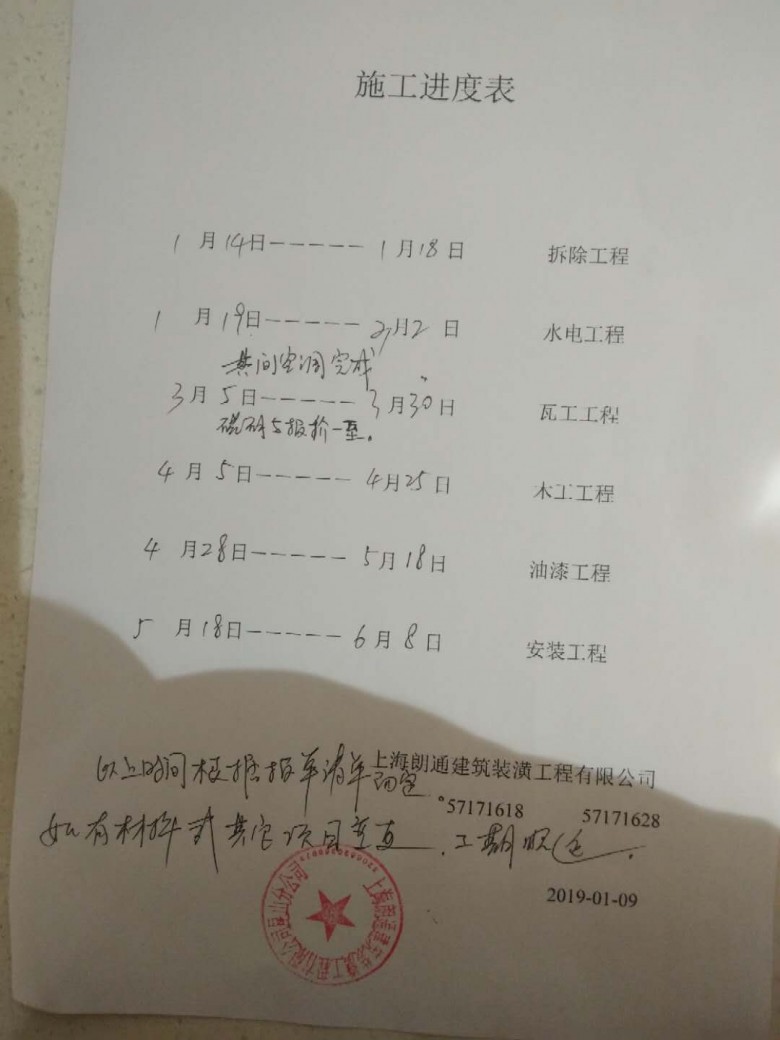 施工进度表
1月14日-----1月18日 拆除工程
1月19日-----2月2日 水电工程
其间空调完成
3月5日-----3月30日 瓦工工程
磁砖与报价一至。
4月5日-----4月25日 木工工程
4月28日-----5月18日 油漆工程
5月18日-----6月8日 安装工程
上海朗通建筑装潢工程有限公司
以上时间根据报单清单
57171618 57171628
如有材料或其它项目变更，工期顺延。
2019-01-09